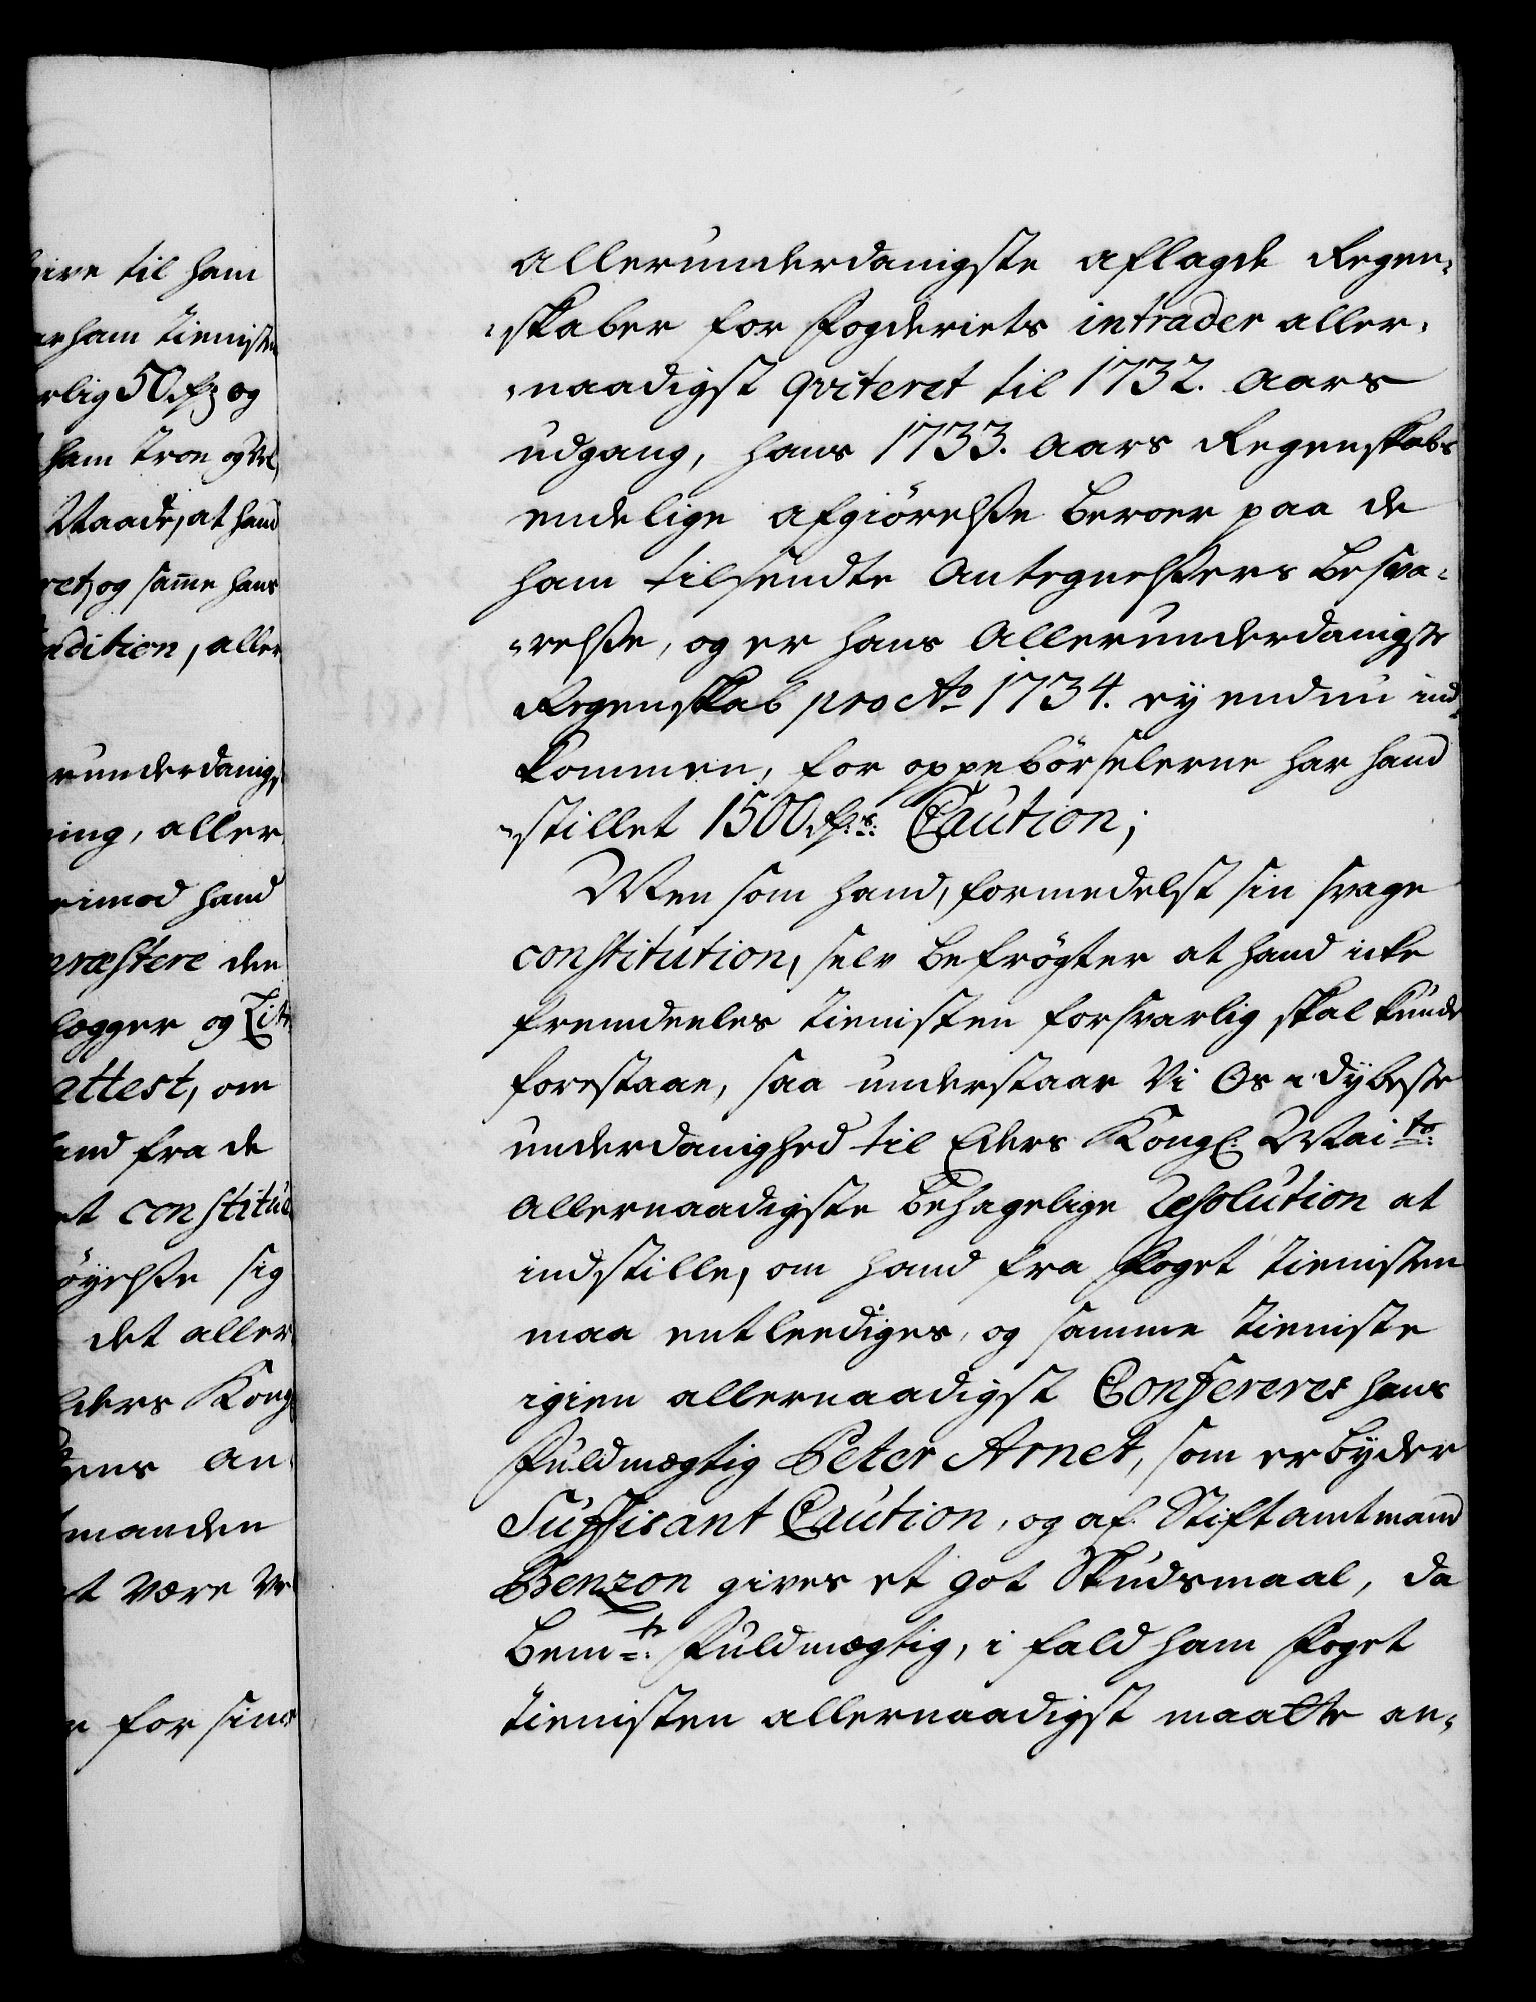 give til ham
ham tienist
rlig 50 rdr og
ham troe og vel
Maade, at hand
ret, og samme hans
ndition, aller
runderdanig,
ning, aller
rimod hand
præstere den
logger og Tit
attest, om
hand fra de
et constitue
öyelsse sig
det aller
Eders Kong
ens an
manden
et være ve
for sine
allerunderdanigste aflagde Regen,
,skaber for fogderiets intrader aller,
,naadigst qviteret til 1732. aars
udgang, hans 1733. aars Regenskabs
endelige afgiörelsse beroer paa de
ham tilsendte Antegnelssers besva,
,relsse, og er hans Allerunderdanigste
Regenskab pro Ao 1734. ey endnu ind,
kommen, for oppebörselerne har hand
,stillet 1500 rdrs: Caution;
Men som hand, formedelst sin svage
constitution, selv befrögter at hand icke
fremdeeles tienisten forsvarlig skal kunde
forestaae, saa understaae Vi Os i dybeste
underdanighed til Eders Kongl: Maits:
allernaadigste behagelige Resolution at
indstille, om hand fra foget tienisten
maa entleediges, og samme tieniste
igien allernaadigst Confereres hans
fuldmægtig Peter Arnet, som erbyder
Suffisant Caution, og af Stiftamtmand
Benzon gives et got Skudsmaal, da
bemte: fuldmægtig, i fald ham foget
tienisten allernaadigst maatte an,